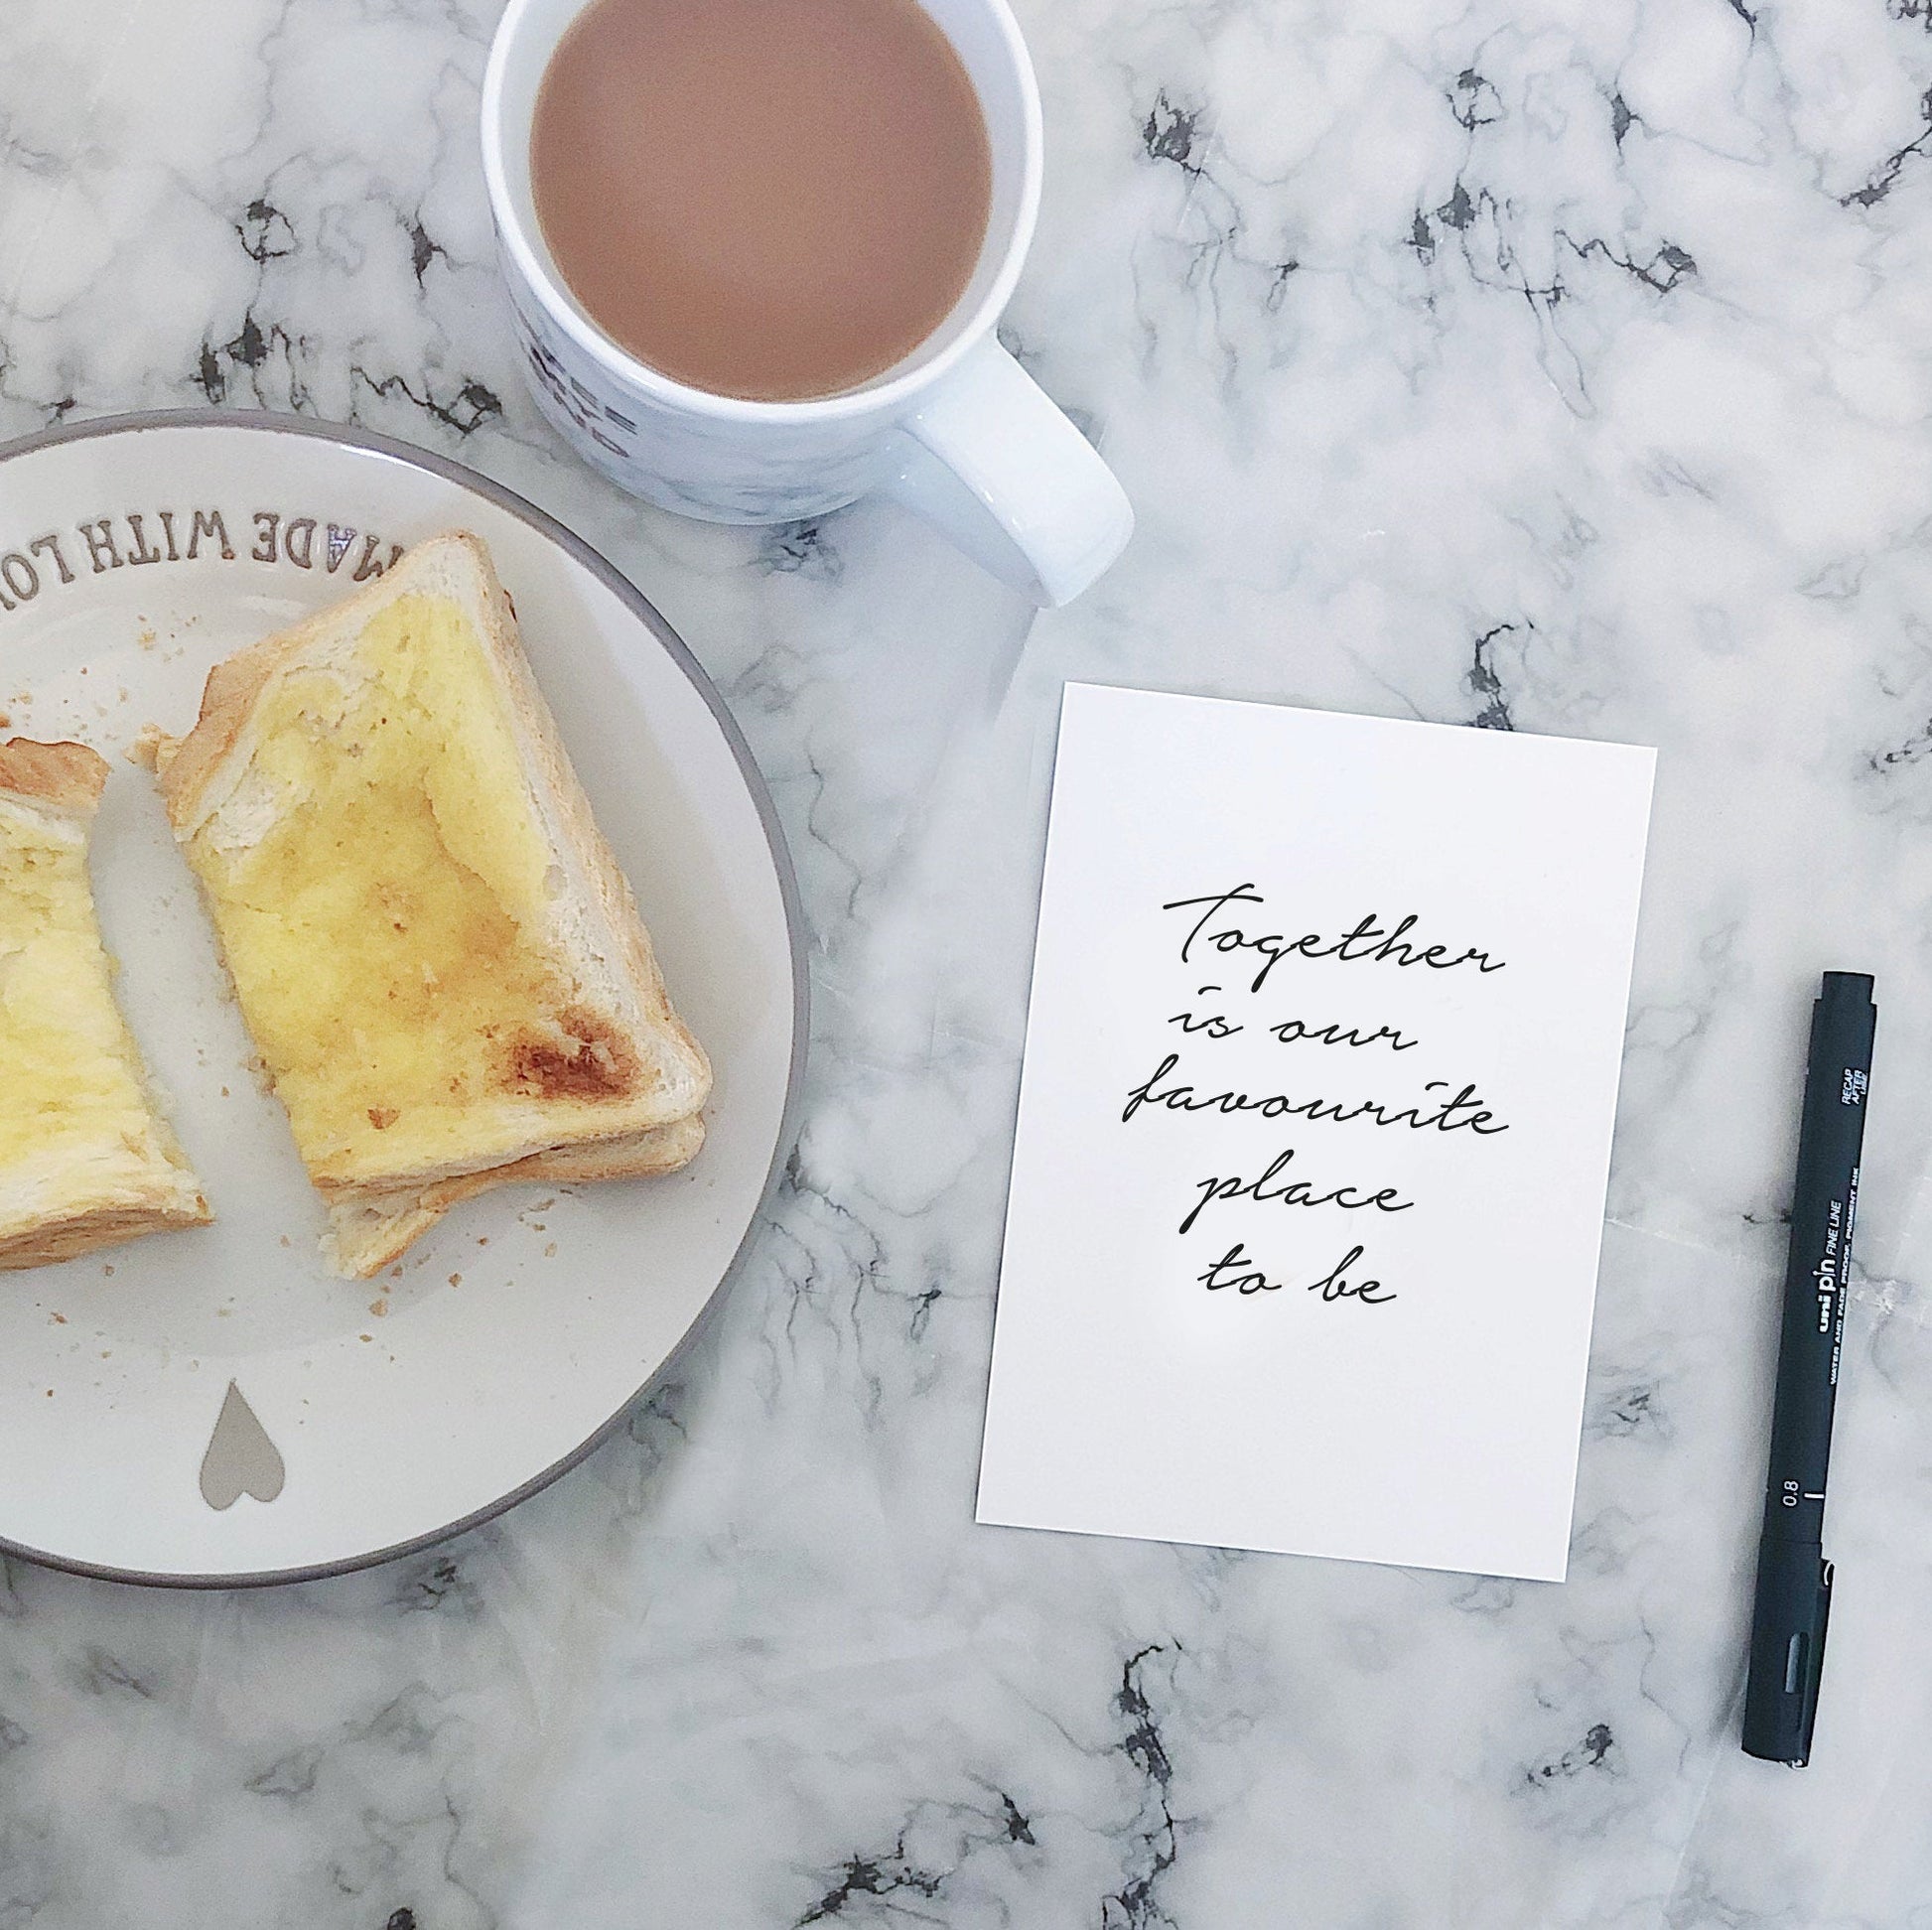 MADE WITH LO
Together
is our
favourite
place
to be
RECAP
AFTER
USE
uni pin FINE LINE
WATER AND FADE PROOF, PIGMENT INK
0.8